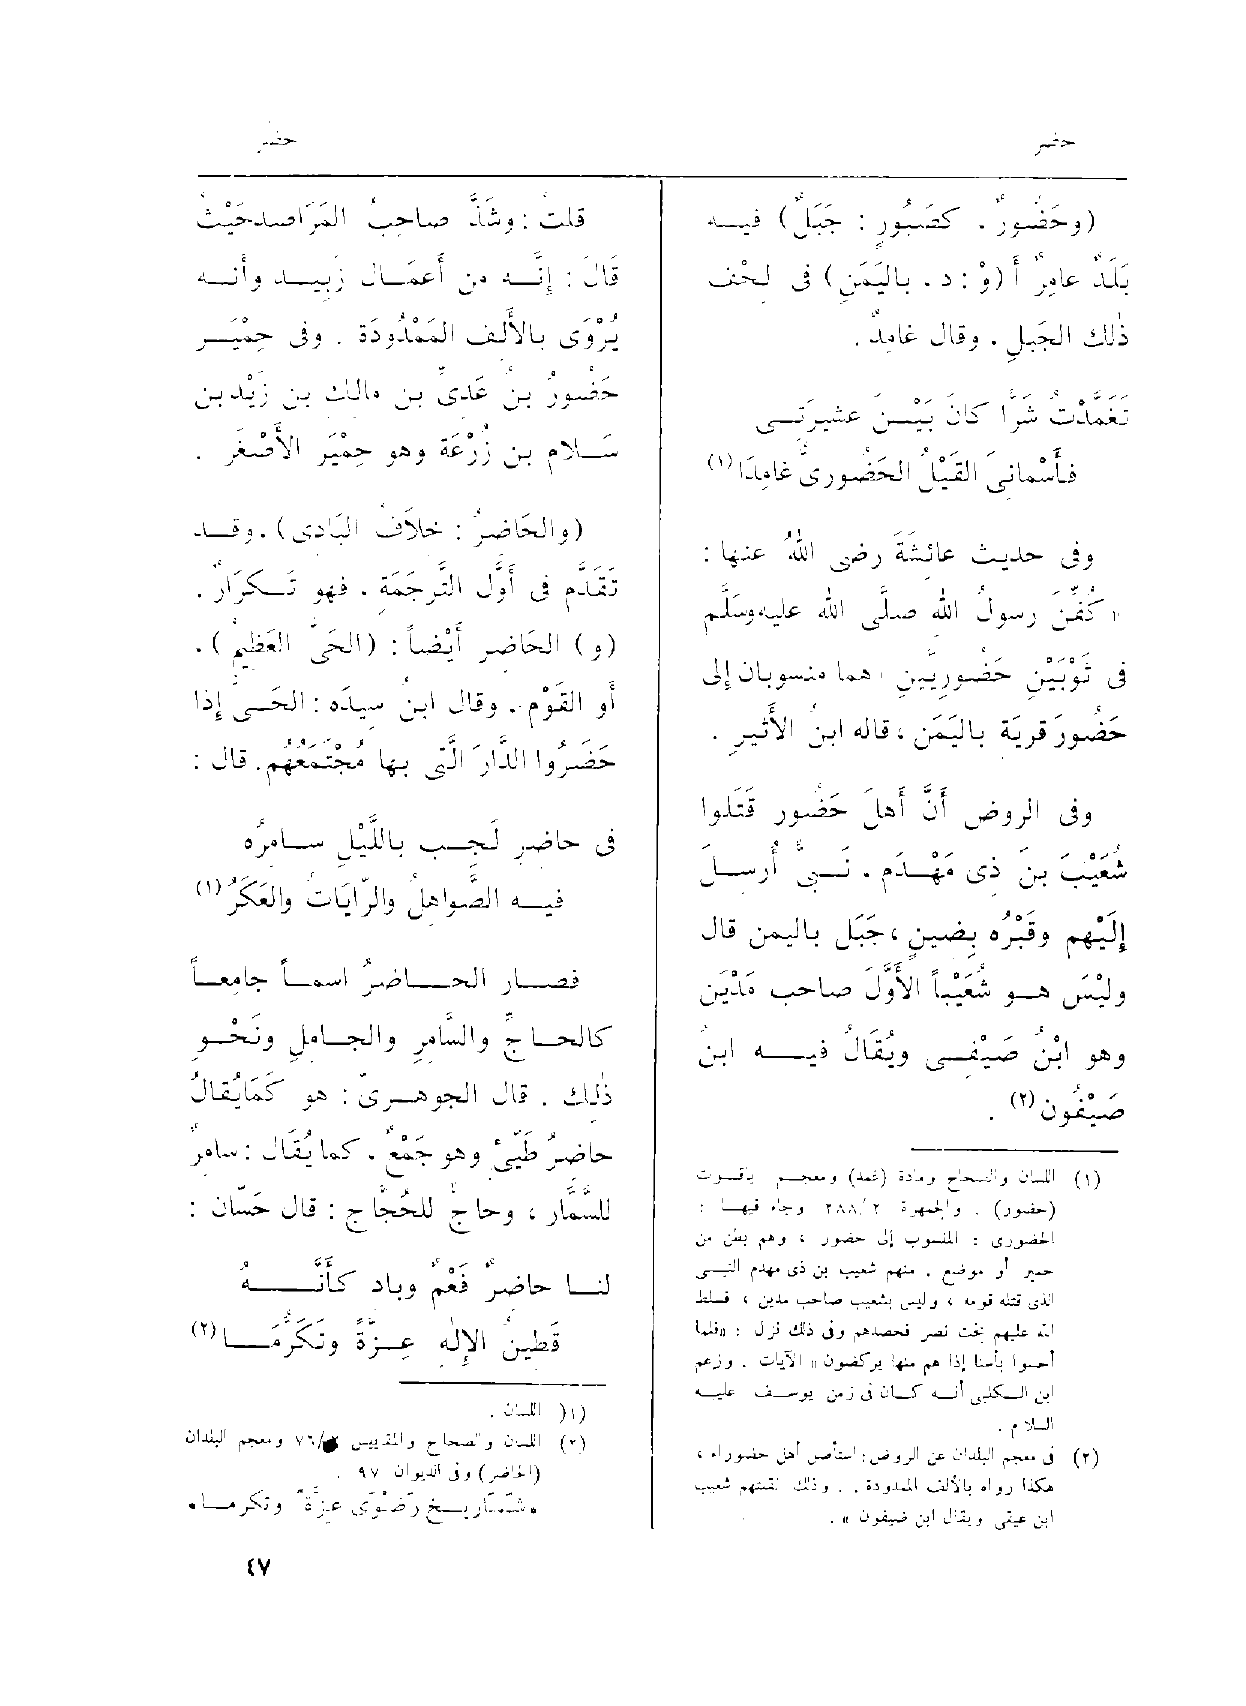 حضر
حضر
(وحَضُورٌ . كصَبُورٍ : جَبَلٌ) فيــه
بَلَدٌ عامِرٌ أَ (وْ : د . باليَمَنِ) فى لِحْف
ذٰلك الجَبلِ . وقال غامِدٌ .
تَغَمَّدْتُ شَرًّا كَانَ بَيْــنَ عشيرَتِــى
فأَسْمانِىَ القَيْلُ الحَضُورىُّ غامِدَا (١)
وفى حديث عائشَةَ رضى اللهُ عنها :
« كُفِّنَ رسولُ الله صلَّى الله عليه وسَلَّم
فى ثَوْبَيْنِ حَضُورِيَّينِ » هما منسوبان إلى
حَضُورَ قرية باليَمَن ، قاله ابنُ الأَثيرِ .
وفى الروض أَنَّ أَهلَ حَضُور قَتَلوا
شُعَيْبَ بنَ ذى مَهْــدَمٍ . نَــبىٌّ أُرسِــلَ
إِلَيْهِم وقَبْرُه بِضِينٍ ، جَبَل باليمن قال
ولَيْسَ هــو شُعَيْباً الأَوَّلَ صاحب مَدْيَن
وهو ابْنُ صَيْفِــى ويُقَالُ فيــــه ابنُ
صَيْفُون (٢) .
(١) اللسان والصحاح ومادة (غمد) ومعجــم ياقــوت
(حضور) . والجمهرة ٢٨٨/٢ وجاء فيهــا :
الحضورى : المنسوب إلى حضور ، وهم بطن من
حمير أو موضع . منهم شعيب بن ذى مهدم النبــى
الذى قتله قومه ، وليس بشعيب صاحب مدين ، فسلط
الله عليهم بخت نصر فحصدهم وفى ذلك نزل : « فلما
أحسوا بأسنا إذا هم منها يركضون » الآيات . وزعم
ابن الــكلبى أنــه كــان فى زمن يوســف عليــه
السلام .
(٢) فى معجم البلدان عن الروض : استأصل أهل حضوراء ،
هكذا رواه بالألف الممدودة . . وذلك لقتلهم شعيب
ابن عيقى ويقال ابن ضيفون » .
قلتُ : وشَذَّ صاحبُ المَرَاصد حَيْثُ
قَالَ : إِنَّــه من أَعمَــال زَبِيــد وأَنــه
يُرْوَى بالأَلف المَمْدُودَة . وفى حِمْيَــر
حَضُورُ بنُ عَدىِّ بن مالك بن زَيْد بن
ســلام بن زُرْعَة وهو حِمْيَر الأَصْغَر .
(والحَاضِرُ : خلاَفُ البَادى) . وقــد
تَقَدَّم فى أَوَّل التَّرجَمَة . فهو تَــكرَارٌ .
(و) الحَاضر أَيْضاً : (الحَىُّ العَظِيمُ) .
أَو القَوْم . وقال ابنُ سِيدَه : الحَــىُّ إذا
حَضَرُوا الدَّارَ الَّتى بها مُجْتَمَعُهُم . قال :
فى حاضرٍ لَجِــبٍ باللَّيْلِ ســامِرُه
فيــه الصَّواهِلُ والرَّايَاتُ والعَكَرُ (١)
فصــار الحــاضرُ اسمــاً جامعــاً
كالحــاجِّ والسَّامِرِ والجــامِلِ ونَحْــوِ
ذٰلك . قال الجوهــرىّ : هو كَمَا يُقَالُ
حاضِرُ طَيِّئٍ وهو جَمْعٌ . كما يُقَال : سامِرٌ
للسُّمَّار ، وحاجٌّ للحُجَّاج : قال حَسّان :
لنــا حاضرٌ فَعْمٌ وبادٍ كأَنَّــــهُ
قَطِينُ الإلٰه عِــزَّةً وتَكرُّمَــا (٢)
(١) اللسان .
(٢) اللسان والصحاح والمقاييس /٧٦ ومعجم البلدان
(الحاضر) وفى الديوان ٩٧ .
« شَمَاريــخ رَضْوَى عِزَّةً وتكرمــا »
٤٧